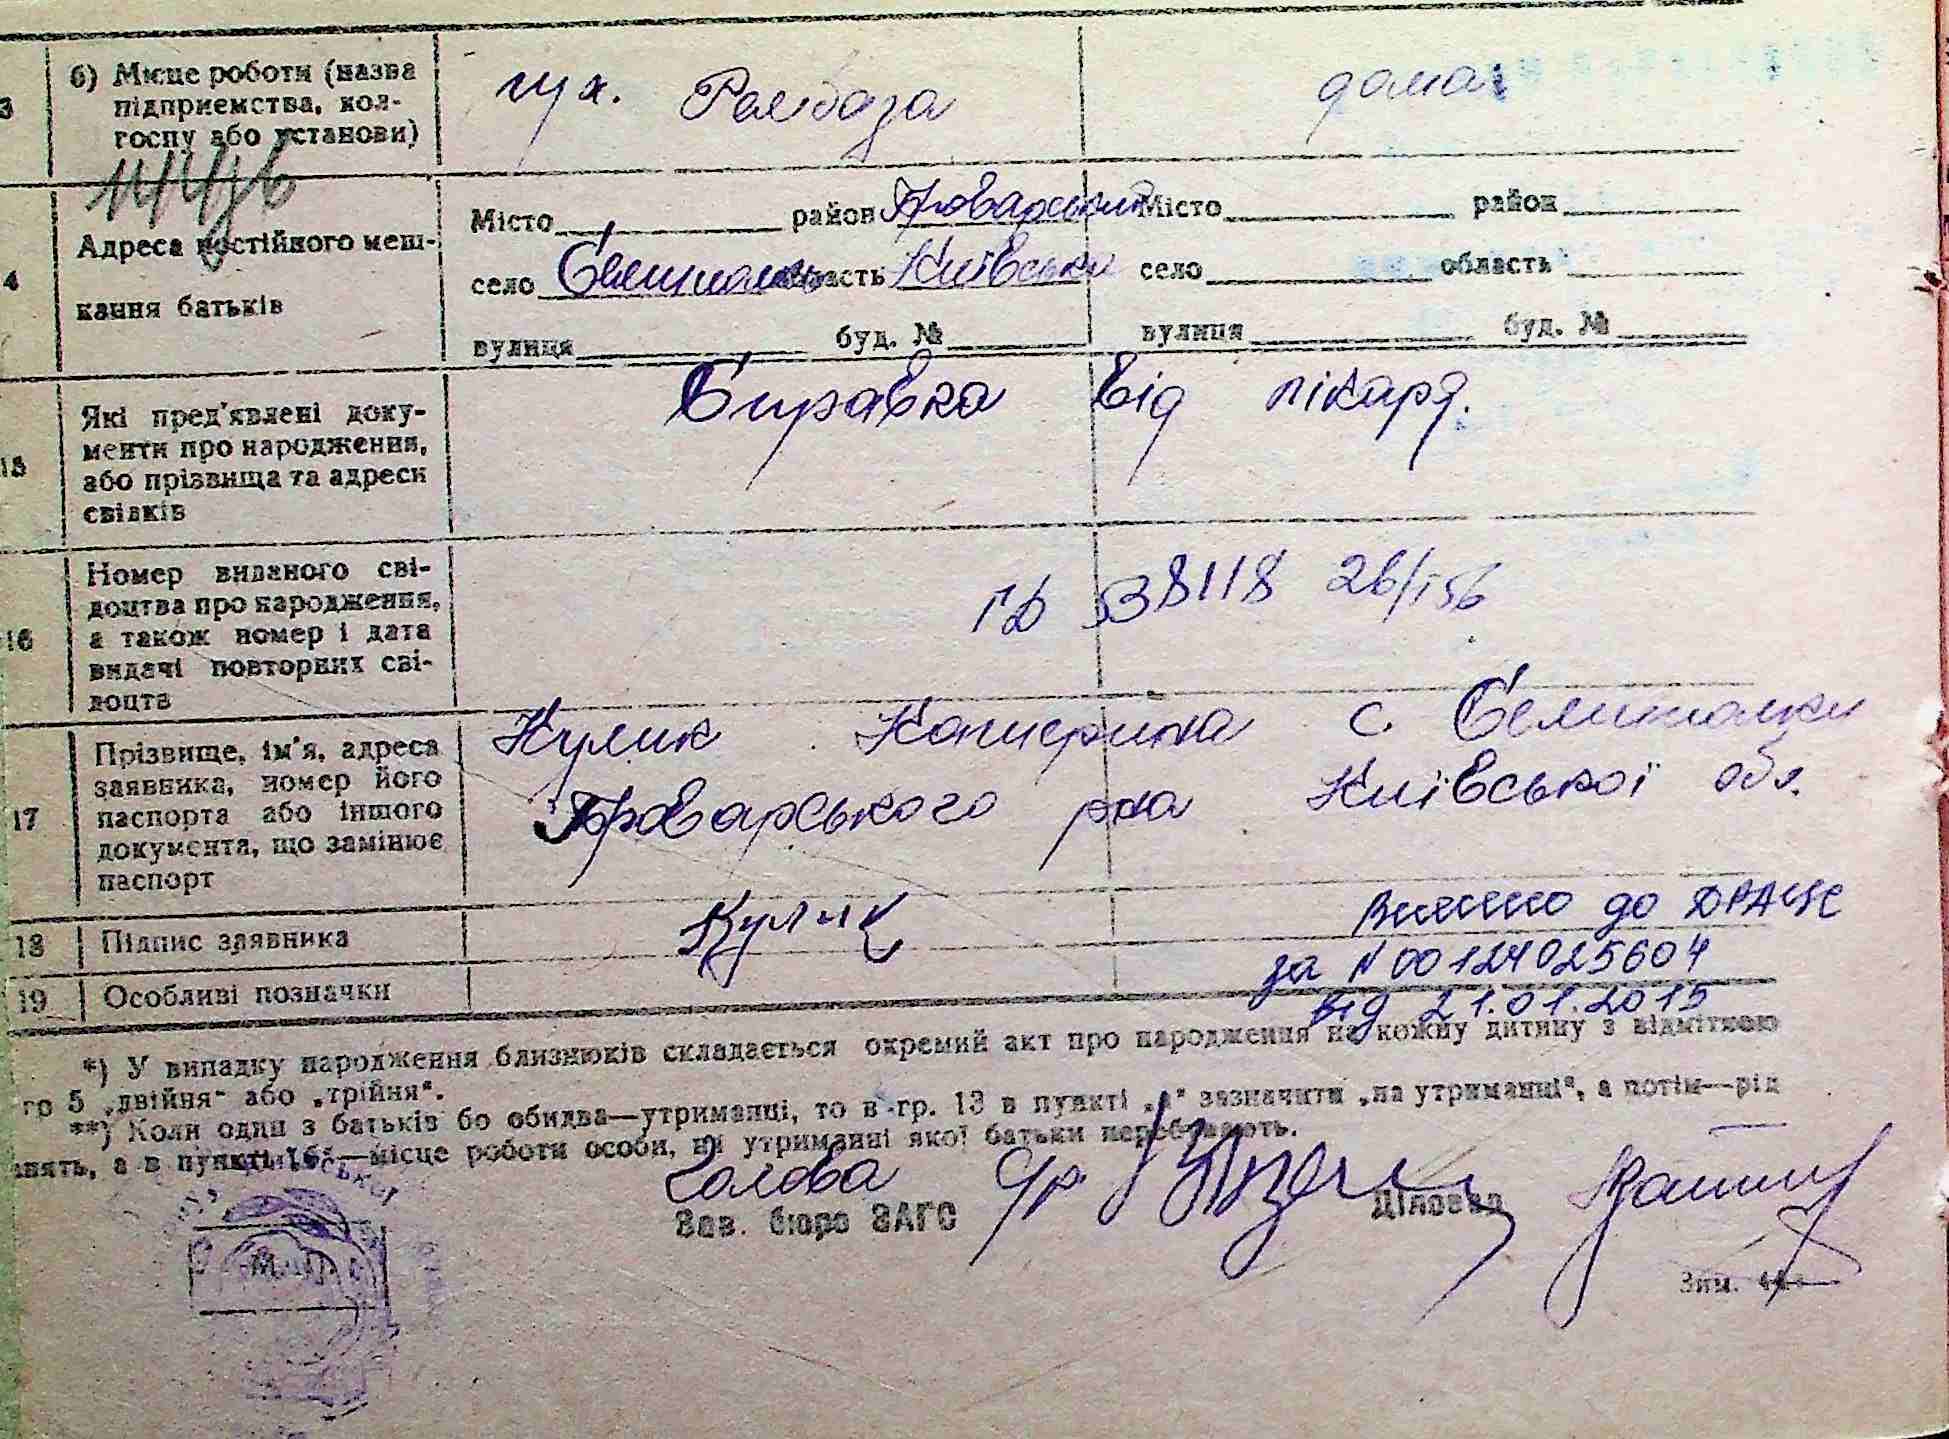 3 б) Місце роботи (назва підприємства, кол-госпу або установи) дома
4 Адреса постійного меш-кання батьків
Місто район Броварський Місто район
село область Київська село область
вулиця буд. № вулиця буд. №
15 Які пред'явлені доку-менти про народження, або прізвища та адреси свідків
Справка від лікаря.
16 Номер виданого сві-доцтва про народження, а також номер і дата видачі повторних сві-доцтв
38118 26/I 56
17 Прізвище, ім'я, адреса заявника, номер його паспорта або іншого документа, що замінює паспорт
Кулик Катерина с. Семиполки
Броварського р-на Київської обл.
18 Підпис заявника Кулик
19 Особливі позначки
Внесено до ДРАЦС
за N 00124025604
від 21.01.2015
*) У випадку народження близнюків складається окремий акт про народження на кожну дитину з відміткою
гр 5 „двійня" або „трійня".
**) Коли один з батьків бо обидва—утриманці, то в гр. 13 в пункті „а" зазначити „на утриманні", а потім—рід
анять, а в пункті „б"—місце роботи особи, на утриманні якої батьки перебувають.
Голова
Зав. бюро ЗАГС Діловод
М. П.
Зим.